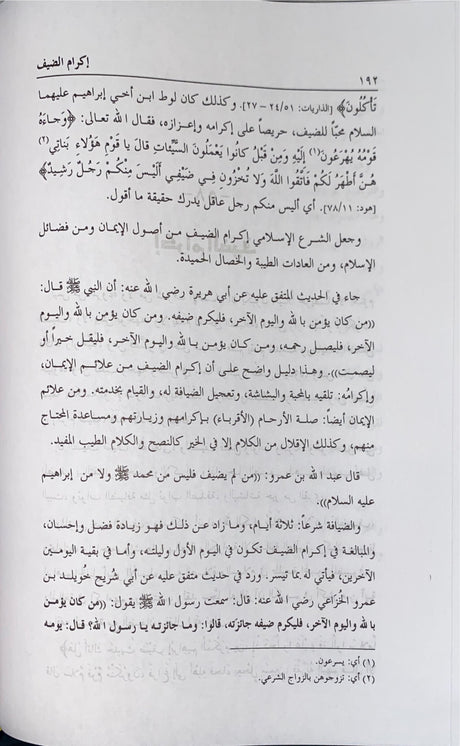 ١٩٢
إكرام الضيف
تَأْكُلُونَ﴾ [الذاريات: ٢٤/٥١ – ٢٧]. وكذلك كان لوط ابن أخي إبراهيم عليهما
السلام محبّاً للضيف، حريصاً على إكرامه وإعزازه، فقال الله تعالى: ﴿وَجَاءَهُ
قَوْمُهُ يُهْرَعُونَ(١) إِلَيْهِ وَمِنْ قَبْلُ كَانُوا يَعْمَلُونَ السَّيِّئَاتِ قَالَ يا قَوْمِ هَؤُلاءِ بَنَاتِي(٢)
هُنَّ أَطْهَرُ لَكُمْ فَاتَّقُوا اللَّهَ وَلا تُخْزُونِ فِي ضَيْفِي أَلَيْسَ مِنكُمْ رَجُلٌ رَشِيدٌ﴾
[هود: ٧٨/١١]. أي أليس منكم رجل عاقل يدرك حقيقة ما أقول.
وجعل الشرع الإسلامي إكرام الضيف من أصول الإيمان ومن فضائل
الإسلام، ومن العادات الطيبة والخصال الحميدة.
جاء في الحديث المتفق عليه عن أبي هريرة رضي الله عنه: أن النبي ﷺ قال:
((من كان يؤمن بالله واليوم الآخر، فليكرم ضيفه. ومن كان يؤمن بالله واليوم
الآخر، فليصل رحمه، ومن كان يؤمن بالله واليوم الآخر، فليقل خيراً أو
ليصمت)). وهذا دليل واضح على أن إكرام الضيف من علائم الإيمان،
وإكرامُه: تلقيه بالمحبة والبشاشة، وتعجيل الضيافة له، والقيام بخدمته. ومن علائم
الإيمان أيضاً: صلة الأرحام (الأقرباء) بإكرامهم وزيارتهم ومساعدة المحتاج
منهم، وكذلك الإقلال من الكلام إلا في الخير كالنصح والكلام الطيب المفيد.
قال عبد الله بن عمرو: ((من لم يضيف فليس من محمد ﷺ ولا من إبراهيم
عليه السلام)).
والضيافة شرعاً: ثلاثة أيام، وما زاد عن ذلك فهو زيادة فضل وإحسان،
والمبالغة في إكرام الضيف تكون في اليوم الأول وليلته، وأما في بقية اليومين
الآخرين، فيأتي له بما تيسر. ورد في حديث متفق عليه عن أبي شُريح خُويلد بن
عمرو الخُزاعي رضي الله عنه: قال: سمعت رسول الله ﷺ يقول: ((من كان يؤمن
بالله واليوم الآخر، فليكرم ضيفه جائزته، قالوا: وما جائزته يا رسول الله؟ قال: يومه
(١) أي: يسرعون.
(٢) أي: تزوجوهن بالزواج الشرعي.